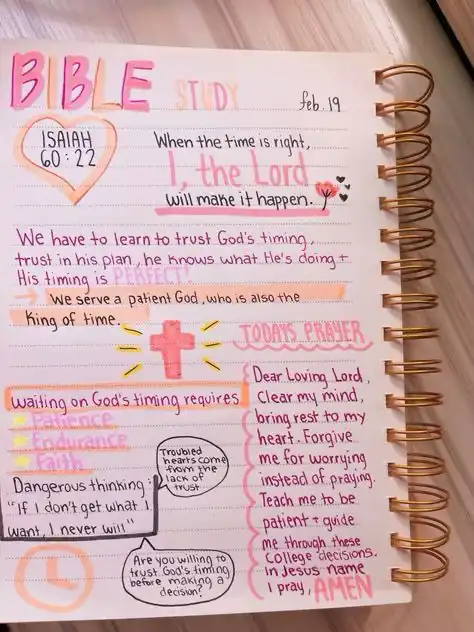 BIBLE STUDY
feb. 19
ISAIAH
60:22
When the time is right,
I, the Lord
will make it happen.
We have to learn to trust God's timing,
trust in his plan, he knows what He's doing +
His timing is PERFECT!
→ We serve a patient God, who is also the
King of time.
waiting on God's timing requires
Patience
Endurance
Faith
Dangerous thinking:
"If I don't get what I
want, I never will"
Troubled
hearts come
from the
lack of
trust
Are you willing to
trust God's timing
before making a
decision?
TODAYS PRAYER
Dear Loving Lord,
Clear my mind,
bring rest to my
heart. Forgive
me for worrying
instead of praying.
Teach me to be
patient + guide
me through these
College decisions.
in Jesus name
I pray, AMEN